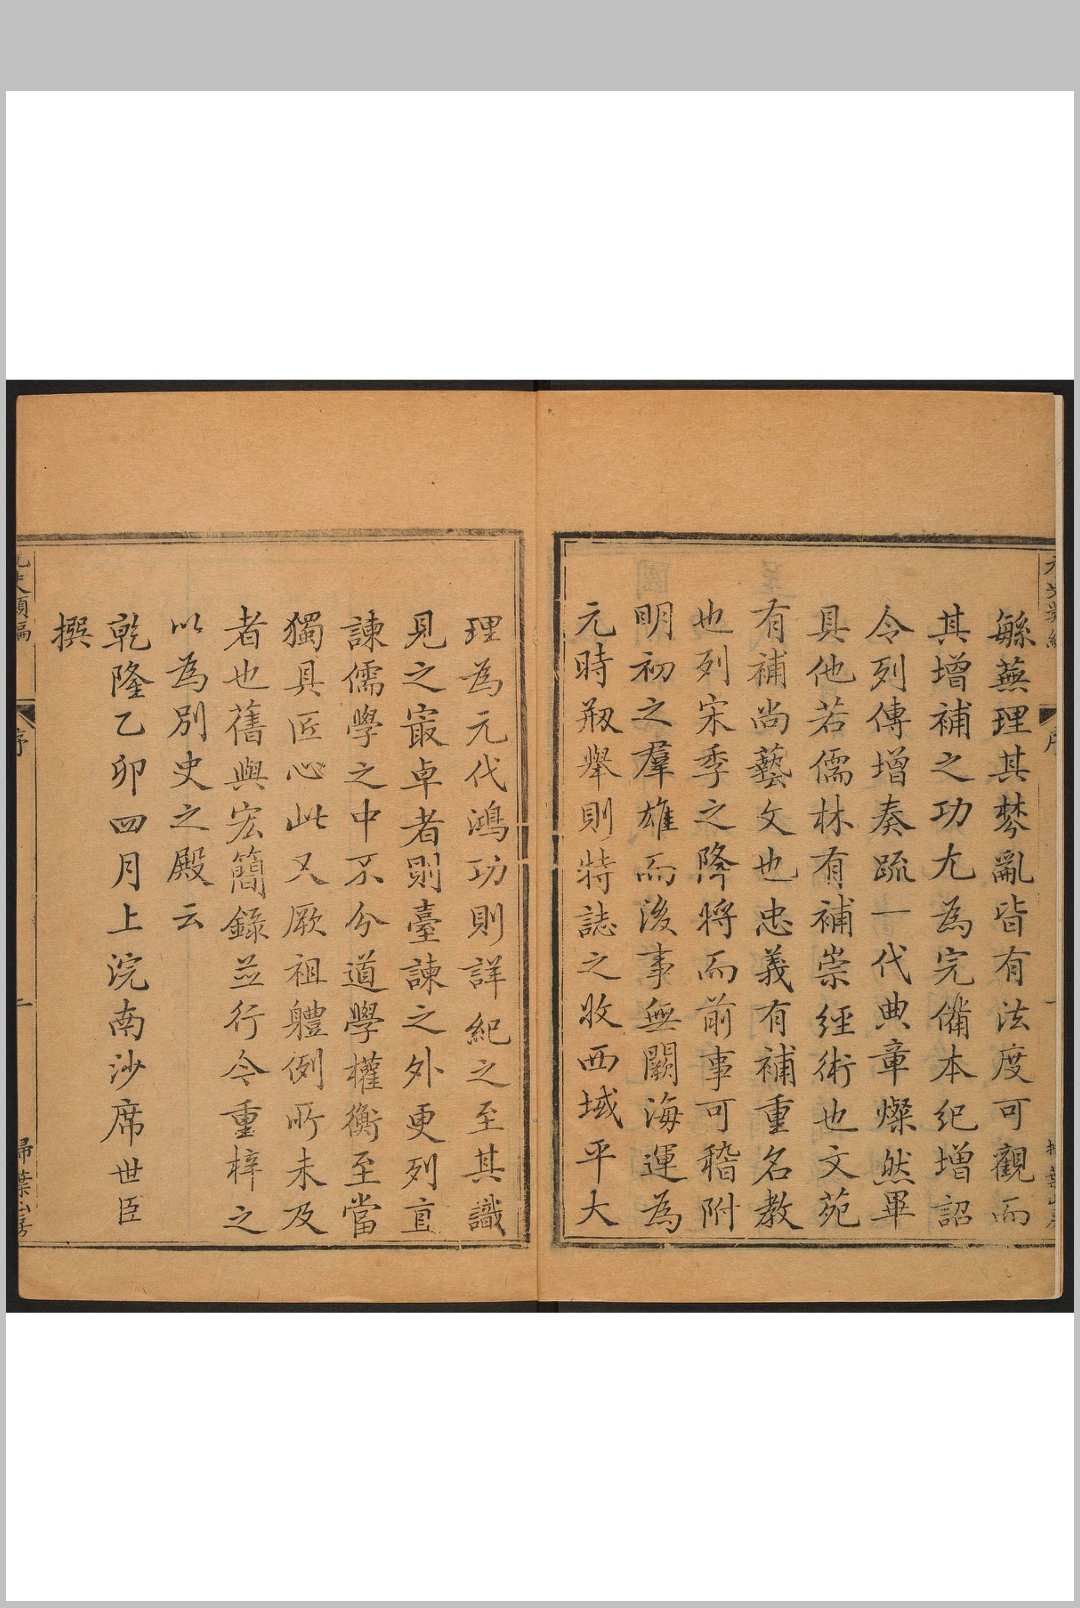 緐蕪理其棼亂皆有法度可觀而
其增補之功尤為完備本紀增詔
令列傳增奏疏一代典章燦然畢
具他若儒林有補崇經術也文苑
有補尚藝文也忠義有補重名教
也列宋季之降將而前事可稽附
明初之羣雄而後事無闕海運為
元時剏舉則特誌之收西域平大
理為元代鴻功則詳紀之至其識
見之㝡卓者則臺諫之外更列直
諫儒學之中不分道學權衡至當
獨具匠心此又厥祖軆例所未及
者也舊與宏簡錄並行今重梓之
以為別史之殿云
乾隆乙卯四月上浣南沙席世臣
撰
序
一
掃葉山房